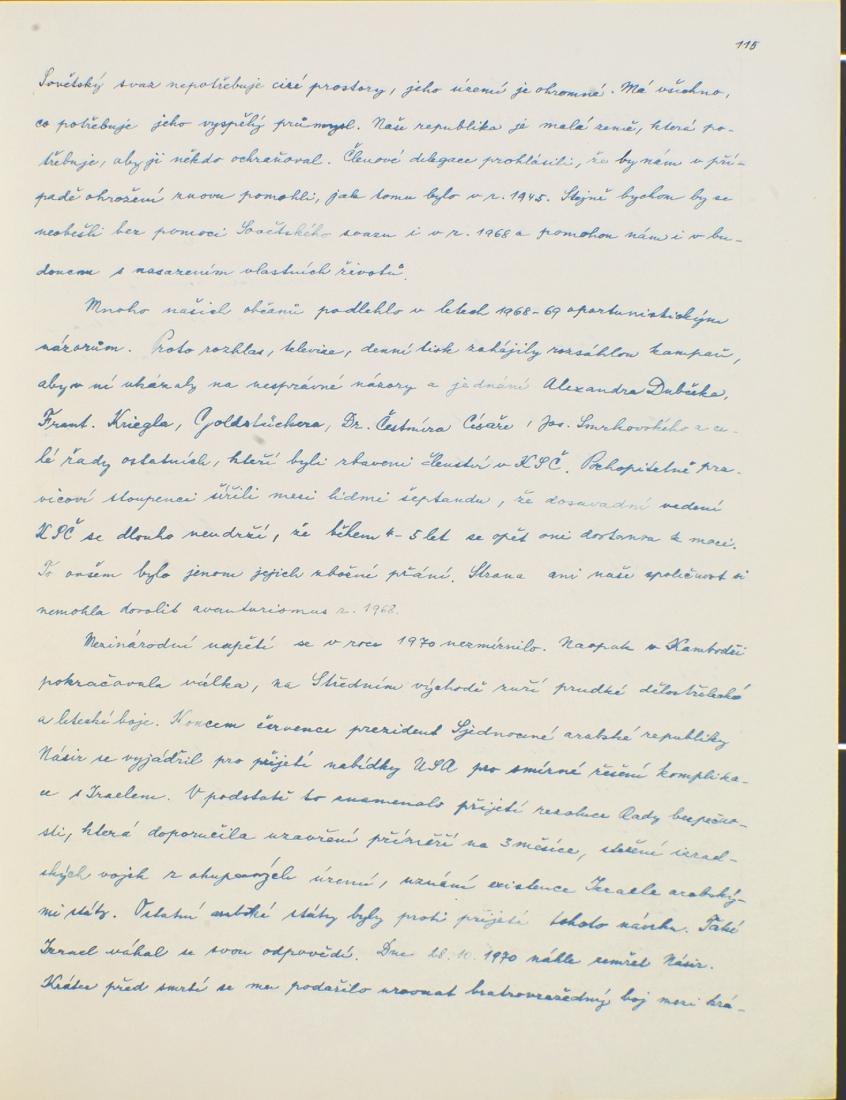 115
Sovětský svaz nepotřebuje cizí prostory, jeho území je ohromné. Má všechno,
co potřebuje jeho vyspělý průmysl. Naše republika je malá země, která po-
třebuje, aby ji někdo ochraňoval. Členové delegace prohlásili, že by nám v pří-
padě ohrožení znovu pomohli, jak tomu bylo v r. 1945. Stejně bychom by se
neobešli bez pomoci Sovětského svazu i v r. 1968 a pomohou nám i v bu-
doucnu s nasazením vlastních životů.
Mnoho našich občanů podlehlo v letech 1968-69 oportunistickým
názorům. Proto rozhlas, televise, denní tisk zahájily rozsáhlou kampaň,
aby v ní ukázaly na nesprávné názory a jednání Alexandra Dubčeka,
Frant. Kriegla, Goldstückera, Dr. Čestmíra Císaře, Jos. Smrkovského a ce-
lé řady ostatních, kteří byli zbaveni členství v KSČ. Pochopitelně pra-
vicoví stoupenci šířili mezi lidmi šeptandu, že dosavadní vedení
KSČ se dlouho neudrží, že během 4-5 let se opět oni dostanou k moci.
To ovšem bylo jenom jejich zbožné přání. Strana ani naše společnost si
nemohla dovolit avanturismus r. 1968.
Mezinárodní napětí se v roce 1970 nezmírnilo. Naopak v Kambodži
pokračovala válka, na Středním východě zuří prudké dělostřelecké
a letecké boje. Koncem července prezident Sjednocené arabské republiky
Násir se vyjádřil pro přijetí nabídky USA pro smírné řešení komplika-
cí s Izraelem. V podstatě to znamenalo přijetí resoluce Rady bezpečno-
sti, která doporučila uzavření příměří na 3 měsíce, stažení izrael-
ských vojsk z okupovaných území, uznání existence Izraele arabský-
mi státy. Ostatní arabské státy byly proti přijetí tohoto návrhu. Také
Izrael váhal se svou odpovědí. Dne 28. 10. 1970 náhle zemřel Násir.
Krátce před smrtí se mu podařilo urovnat bratrovražedný boj mezi krá-